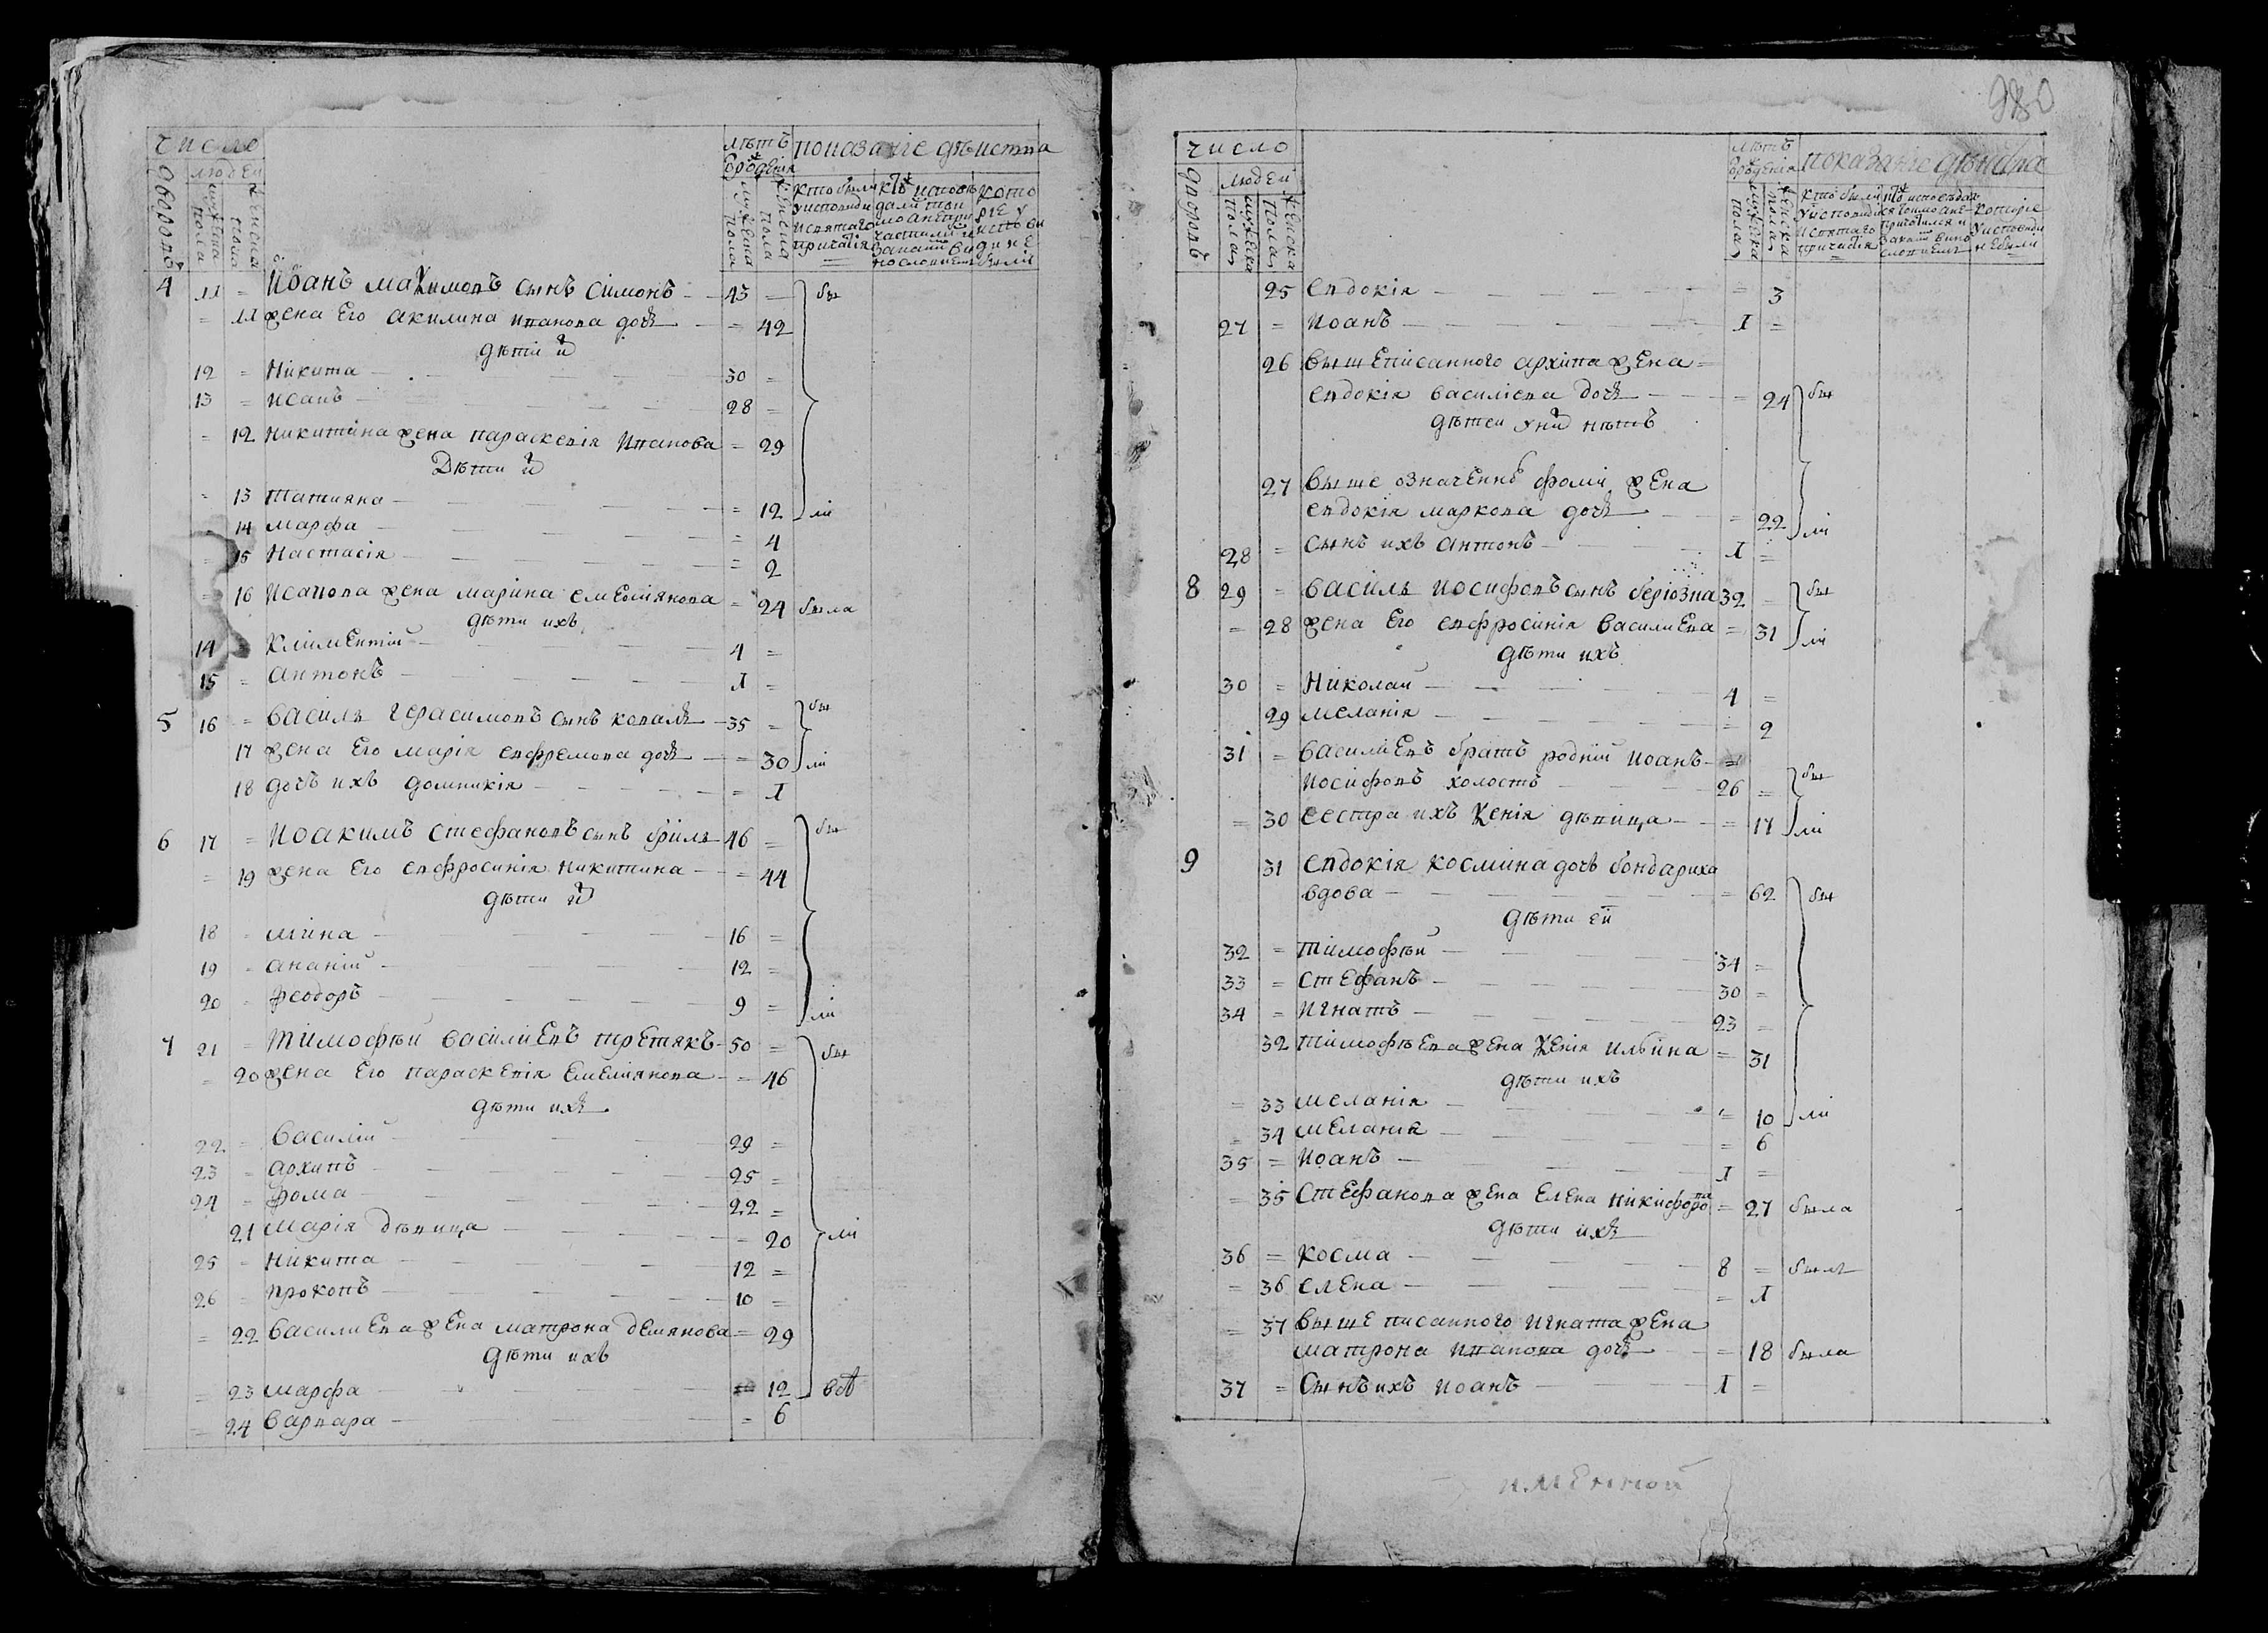 число
людей
дворовъ
мужеска пола
женска пола
лѣтъ
ѿ рожденія
мужеска пола
женска пола
показаніе дѣиства
4 11 = Иоанъ маѯимовъ сынъ симонъ 43 = бы
= 11 жена Его акилина иванова дочь = 42
дѣти иⷯ
12 = Никита 30 =
13 = исакъ 28 =
= 12 никитина жена параскевія иванова = 29
Дѣти иⷯ
= 13 татияна = 12 ли
= 14 марфа = 4
= 15 Настасія = 2
= 16 исакова жена марина емелиянова = 24 была
дѣти ихъ
14 = климентій 4 =
15 = антонъ 1 =
5 16 = василь герасимовъ сынъ коваль 35 = бы
17 жена Его марія ефремова дочь = 30 ли
18 дочъ ихъ домникія = 1
6 17 = иоакимъ стефановъ сынъ бриль 46 = бы
= 19 жена Его евфросинія никитина = 44
дѣти иⷯ
18 = мина 16 =
19 = ананій 12 =
20 = феодоръ 9 = ли
7 21 = тимофѣй василиевъ третякъ 50 = бы
= 20 жена Его параскевія Емелиянова = 46
дѣти ихъ
22 = василій 29 =
23 = архипъ 25 =
24 = фома 22 =
21 марія дѣвица = 20 ли
25 = никита 12 =
26 = прокопъ 10 =
= 22 василиева жена матрона демянова = 29
дѣти ихъ
= 23 марфа = 12 всѣ
= 24 варвара = 6
980
число
людей
дворовъ
мужеска пола
женска пола
лѣтъ
ѿ рожденія
мужеска пола
женска пола
показаніе дѣиства
25 евдокія = 3
27 = иоанъ 1 =
26 вышеписанного архипа жена =
евдокія василіева дочь = 24 бы
дѣтей у ниⷯ нѣтъ
27 выше означенⷩ фоми жена
евдокія маркова дочь = 22 ли
28 = сынъ ихъ антонъ 1 =
8 29 = василь иосифовъ сынъ беріозна 32 = бы
= 28 жена Его евфросинія василиева = 31 ли
дѣти ихъ
30 = Николай 4 =
29 меланія = 2
31 = василиевъ братъ родній иоанъ =
иосифовъ холостъ 26 = бы
= 30 сестра ихъ ѯенія дѣвица = 17 ли
9 31 евдокія космина дочъ бондариха
вдова = 62 бы
дѣти ей
32 = тимофѣй 34 =
33 = стефанъ 30 =
34 = игнатъ 23 =
32 тимофѣева жена ѯенія ильина = 31
дѣти ихъ
= 33 меланія = 10 ли
= 34 меланія = 6
35 = иоанъ 1 =
= 35 стефанова жена Елена никифорова = 27 была
дѣти ихъ
36 = косма 8 = былъ
= 36 елена = 1
= 37 выше писанного игната жена
матрона иванова дочь = 18 была
37 = сынъ ихъ иоанъ 1 =
именной